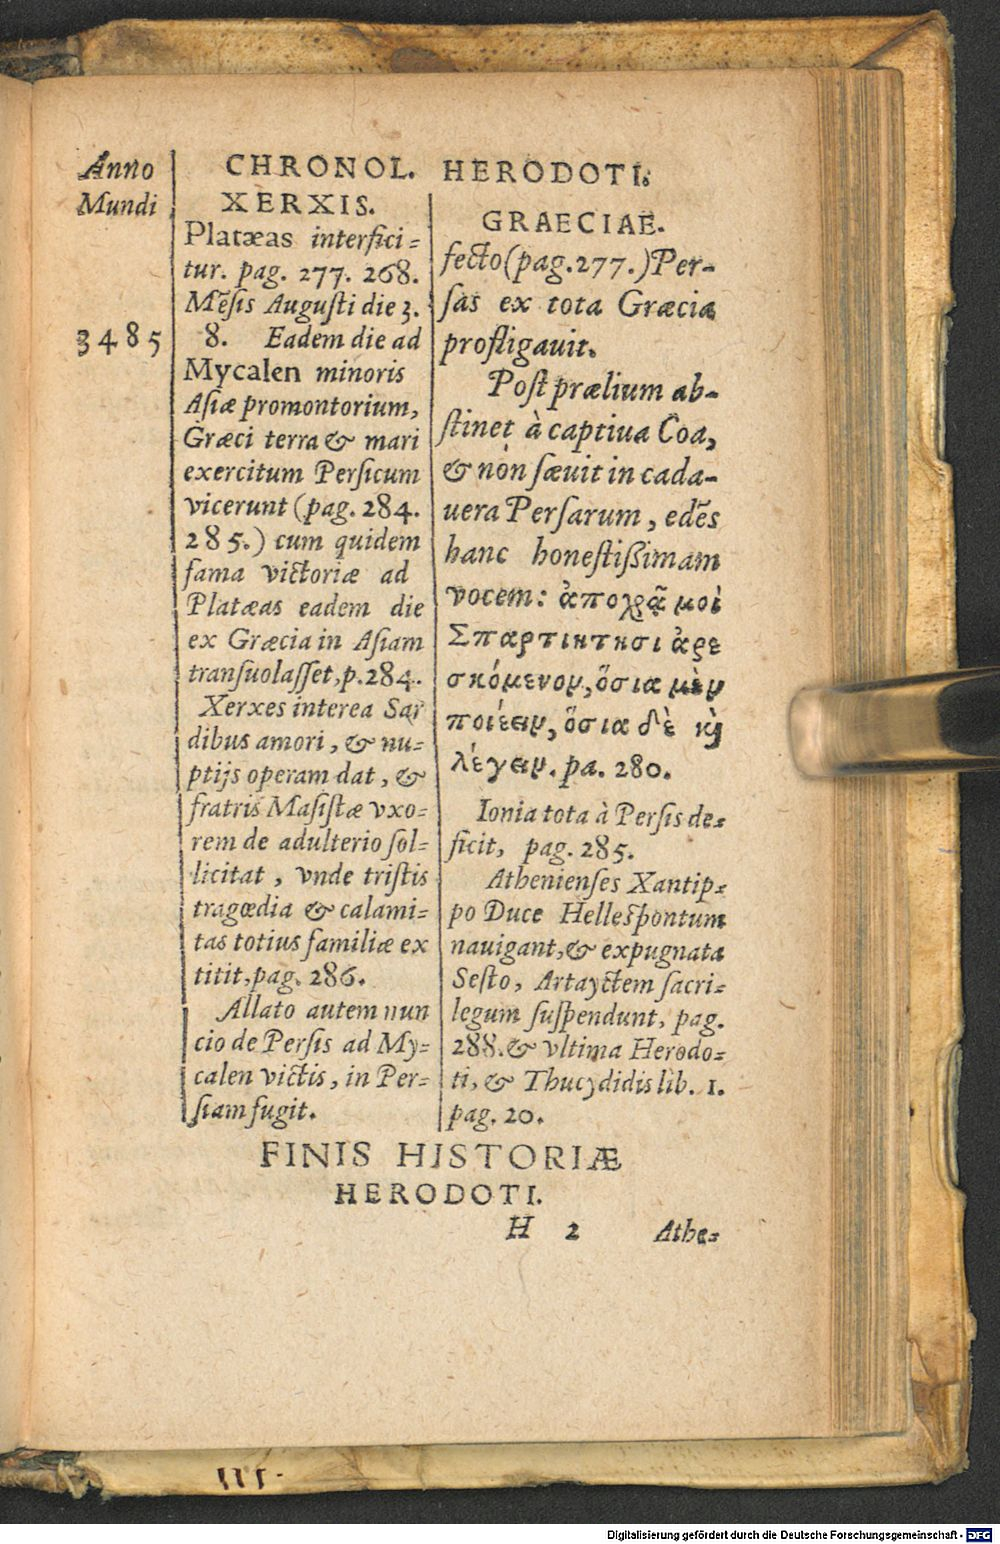 Anno
Mundi
3485
CHRONOL. HERODOTI.
XERXIS.
Platæas interfici=
tur. pag. 277. 268.
Mēsis Augusti die 3.
8. Eadem die ad
Mycalen minoris
Asiæ promontorium,
Græci terra & mari
exercitum Persicum
vicerunt (pag. 284.
285.) cum quidem
fama victoriæ ad
Platæas eadem die
ex Græcia in Asiam
transuolasset, p. 284.
Xerxes interea Sar
dibus amori, & nu=
ptijs operam dat, &
fratris Masistæ vxo=
rem de adulterio sol=
licitat, vnde tristis
tragœdia & calami=
tas totius familiæ ex
titit, pag. 286.
Allato autem nun
cio de Persis ad My=
calen victis, in Per=
siam fugit.
GRAECIAE.
fecto (pag. 277.) Per-
sas ex tota Græcia
profligauit.
Post prælium ab-
stinet à captiua Coa,
& nōn sæuit in cada-
uera Persarum, edēs
hanc honestißimam
vocem: ἀποχρᾷ μοὶ
Σπαρτιητησι ἀρε
σκόμενον, ὅσια μὲν
ποιέειν, ὅσια δὲ κὶ
λέγειν. pa. 280.
Ionia tota à Persis de=
ficit, pag. 285.
Athenienses Xantip=
po Duce Hellespontum
nauigant, & expugnata
Sesto, Artayctem sacri=
legum suspendunt, pag.
288. & vltima Herodo=
ti, & Thucydidis lib. 1.
pag. 20.
FINIS HISTORIÆ
HERODOTI.
H 2 Athe=
Digitalisierung gefördert durch die Deutsche Forschungsgemeinschaft - DFG